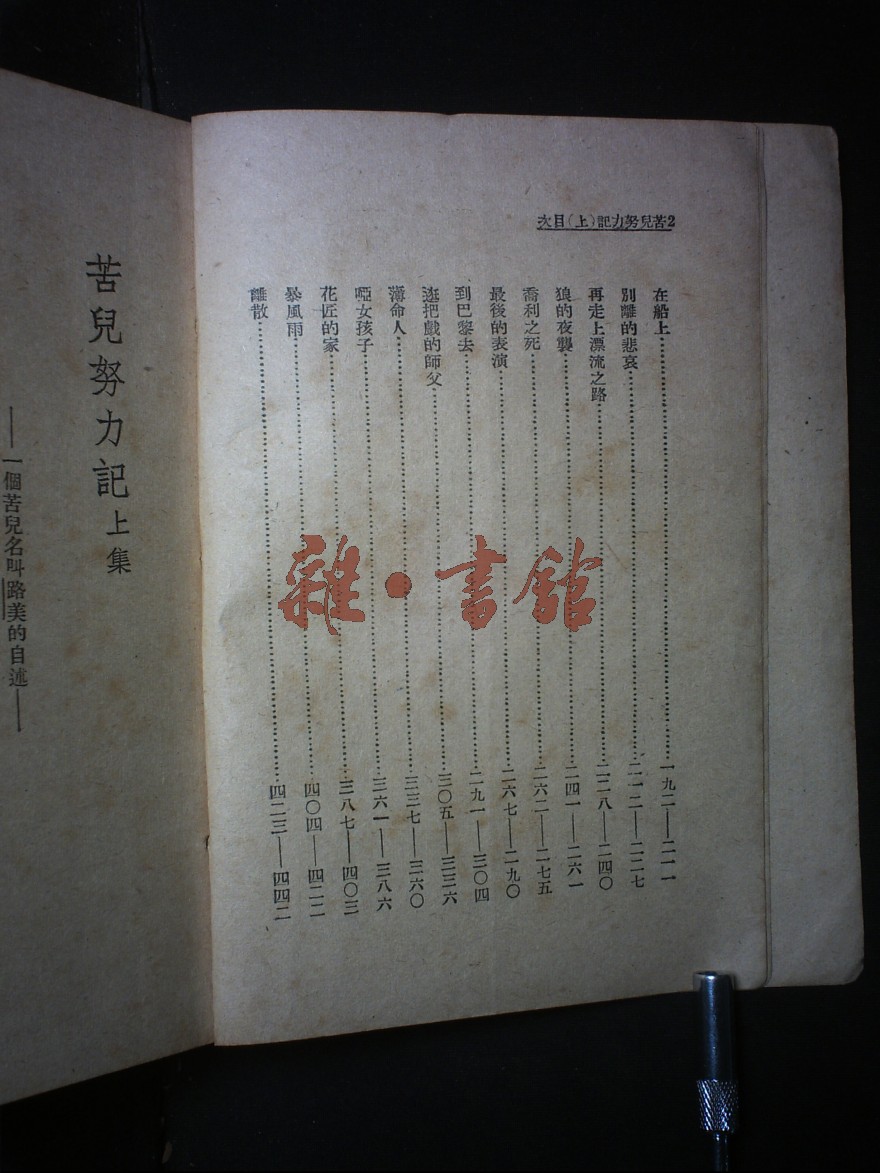 2苦兒努力記(上)目次
在船上……一九二——二一一
別離的悲哀……二一二——二二七
再走上漂流之路……二二八——二四〇
狼的夜襲……二四一——二六一
喬利之死……二六二——二七五
最後的表演……二六七——二九〇
到巴黎去……二九一——三〇四
逛把戲的師父……三〇五——三三六
薄命人……三三七——三六〇
啞女孩子……三六一——三八六
花匠的家……三八七——四〇三
暴風雨……四〇四——四二二
離散……四二三——四四二
苦兒努力記 上集
——一個苦兒名叫路美的自述——
雜·書館